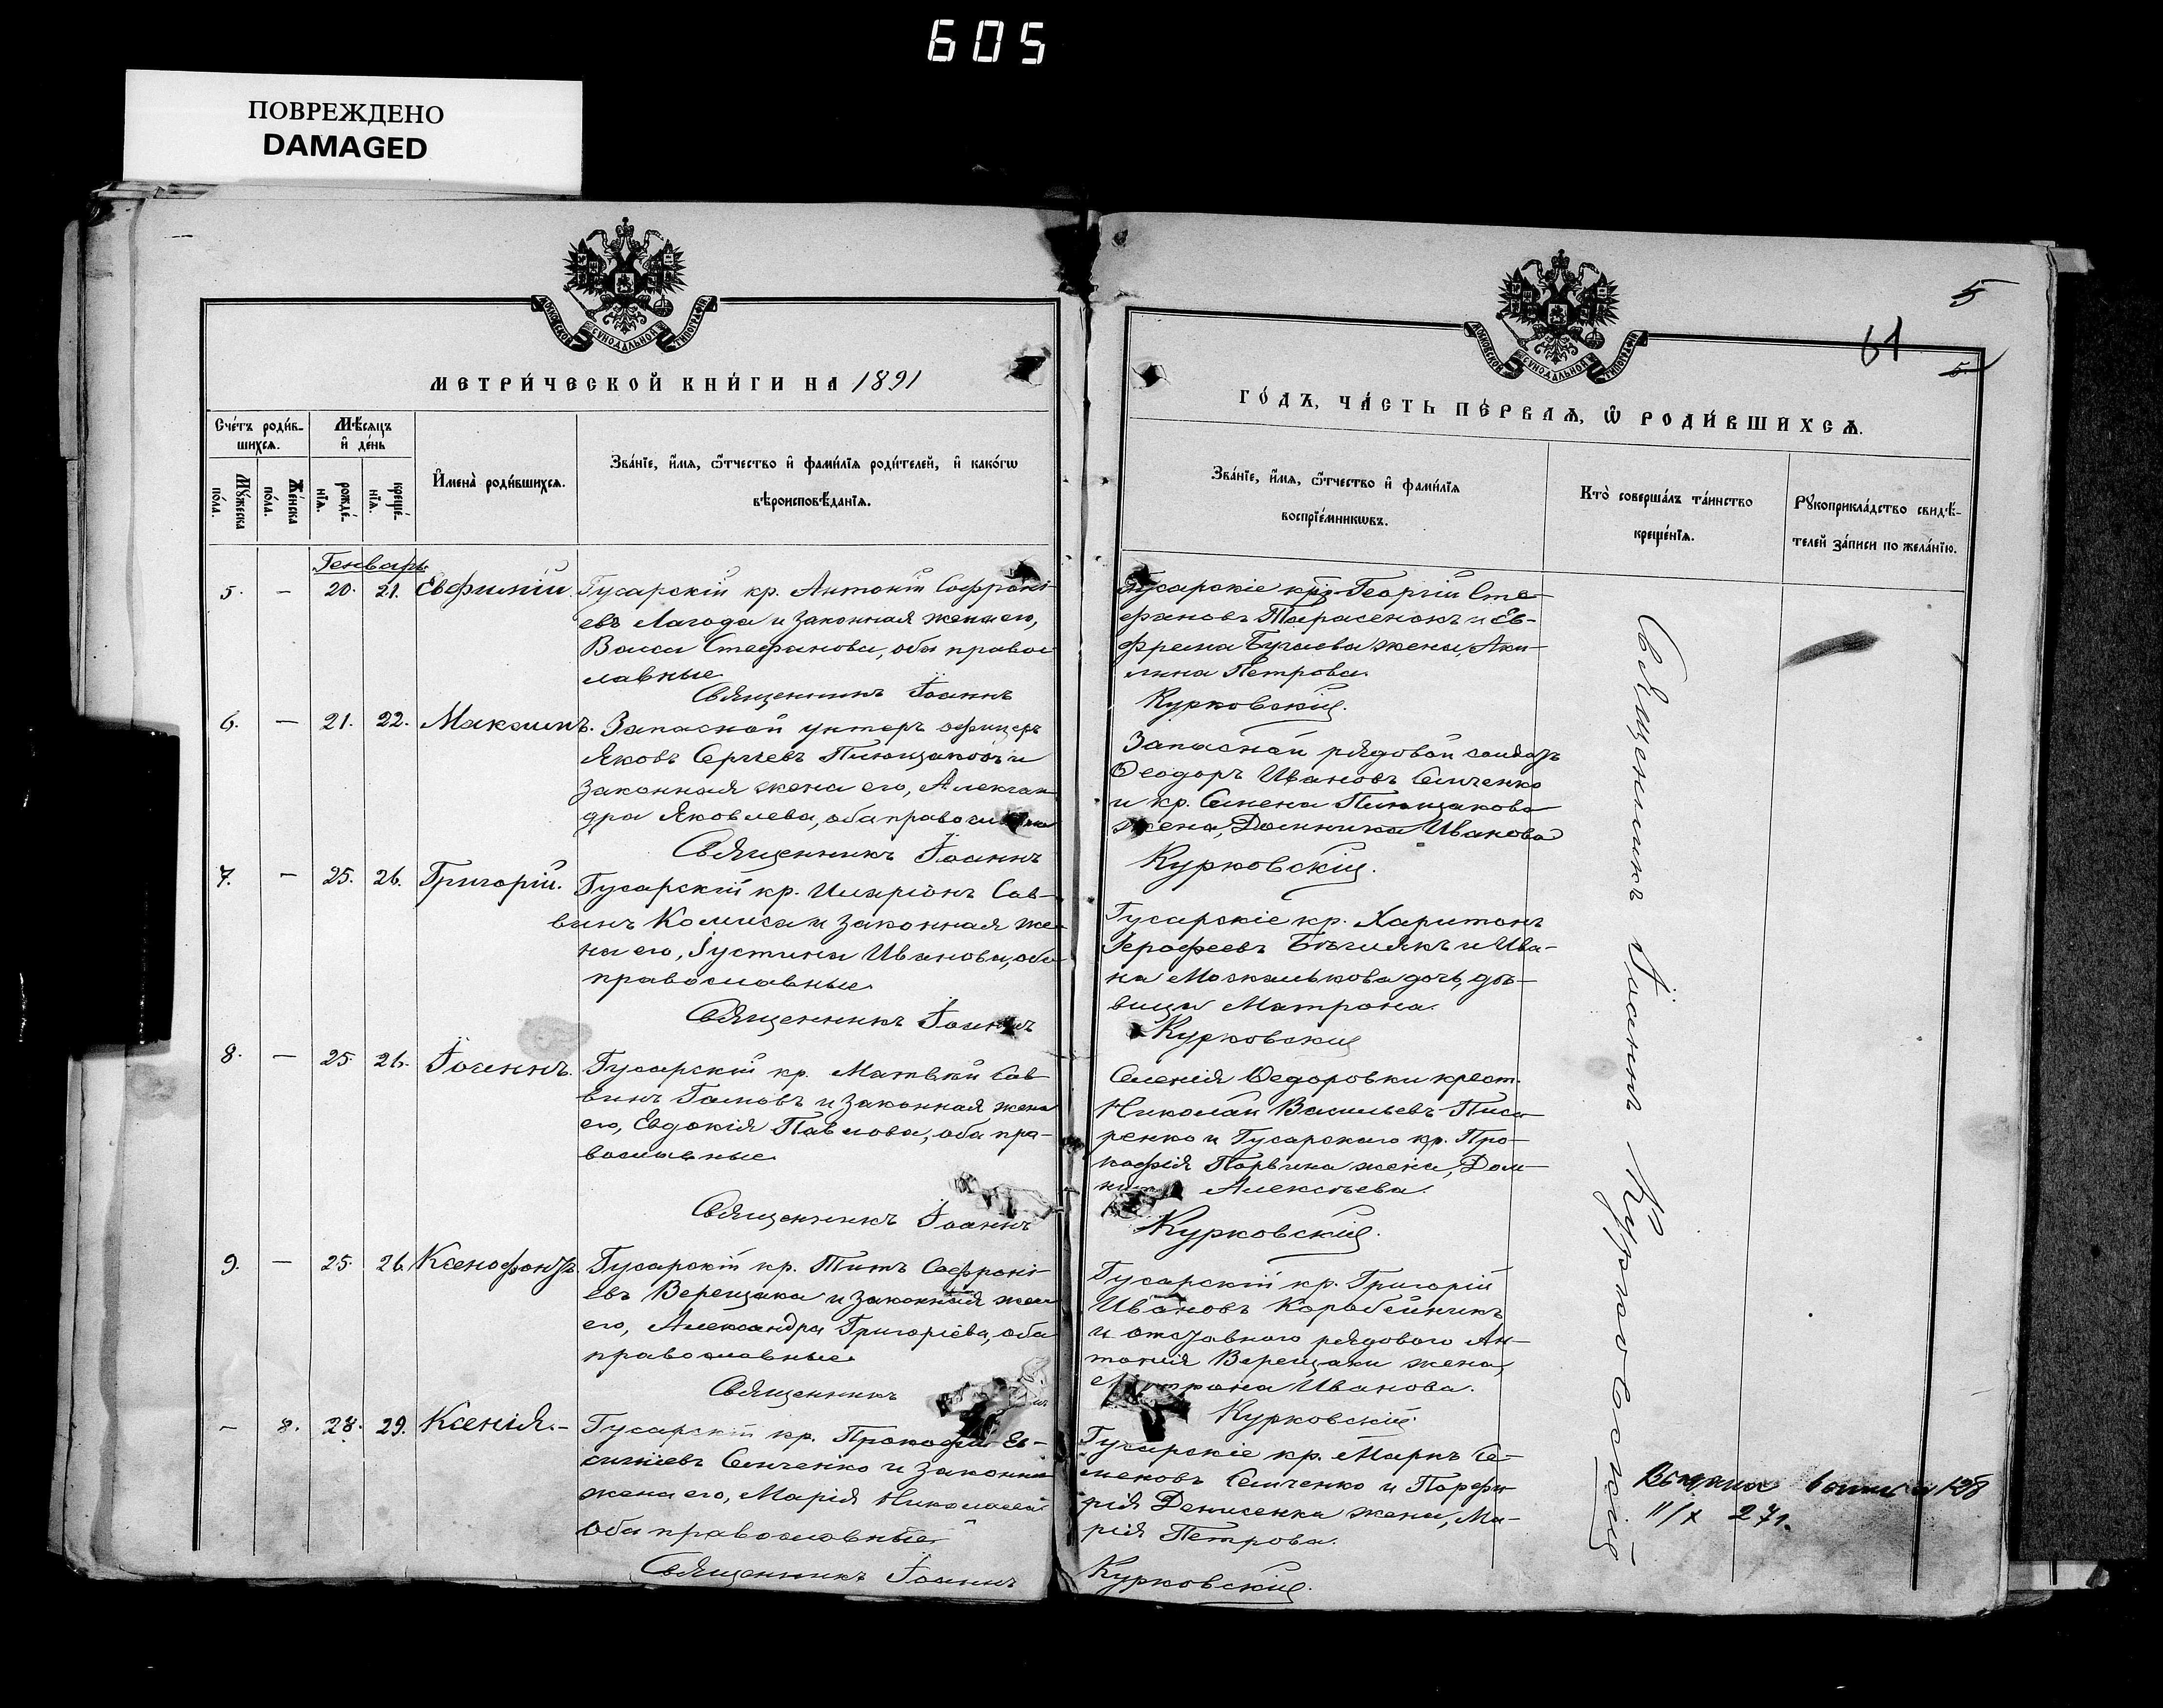 605
ПОВРЕЖДЕНО
DAMAGED
МОСКОВСКОЙ СѴНОДАЛЬНОЙ ТИПОГРАФІИ
МЕТРИ́ЧЕСКОЙ КНИ́ГИ НА 1891
Сче́тъ роди́в-
шихся.
Мѣ́сяцъ
и҆ де́нь
Мꙋ́жеска
по́ла.
Же́нска
по́ла.
рожде́-
нїѧ.
креще́-
нїѧ.
И҆мена̀ роди́вшихся.
Зва́нїе, и҆́мя, ѻ҆́тчество и҆ фами́лїя роди́телей, и҆ како́гѡ
вѣроисповѣ́данїя.
Генварь
5. — 20. 21. Евфимій. Гусарскій кр. Антоній Софроні-
евъ Лагода и законная жена его,
Васса Стефанова, оба правос
лавные
Священникъ Іоаннъ
6. — 21. 22. Максимъ. Запасной унтеръ офицеръ
Яковъ Сергіевъ и
законная жена его, Алексан
дра Яковлева, оба православные
Священникъ Іоаннъ
7. — 25. 26. Григорій. Гусарскій кр. Иларіонъ Сав-
винъ Комиса и законная же
на его, Іустина Иванова, оба
православные
Священникъ Іоаннъ
8. — 25. 26. Іоаннъ. Гусарскій кр. Матвѣй Сав
винъ и законная жена
его, Евдокія Павлова, оба пра-
вославные
Священникъ Іоаннъ
9. — 25. 26. Ксенофонтъ. Гусарскій кр. Титъ Софроні
евъ Верещака и законная жена
его, Александра Григоріева, оба
православные
Священникъ
— 8. 28. 29. Ксенія. — Гусарскій кр. Прокофій Ев-
Семченко и законная
жена его, Марія Николаева
оба православные
Священникъ Іоаннъ
5
61
5
МОСКОВСКОЙ СѴНОДАЛЬНОЙ ТИПОГРАФІИ
ГО́ДЪ, ЧА́СТЬ ПЕ́РВАѦ, Ѽ РОДИ́ВШИХСѦ.
Зва́нїе, и҆́мя, ѻ҆́тчество и҆ фами́лїя
воспрїе́мникѡвъ.
Кто̀ соверша́лъ та́инство
креще́нїя.
Рꙋкоприкла́дство свидѣ́-
телей за́писи по жела́нїю.
Гусарскіе кр. Георгій Сте-
фановъ Тарасенокъ и Ев-
фрема Бугаева жена, Аки-
лина Петрова.
Курковскій.
Запасной рядовой солдатъ
Ѳеодоръ Ивановъ Семченко
и кр. Семена
жена, Домникія Иванова
Курковскій.
Гусарскіе кр. Харитонъ
Іерофеевъ и Ива-
на Москалькова дочь, дѣ-
вица Матрона.
Курковскій
Селенія Ѳедоровки крест.
Николай Васильевъ Писа
ренко и Гусарскаго кр. Про-
кофія жена, Дом-
Алексѣева.
Курковскій.
Гусарскій кр. Григорій
Ивановъ Коробейникъ
и отставного рядового Ан-
тонія Верещаки жена,
Матрона Иванова.
Курковскій
Гусарскіе кр. Маркъ Се-
меновъ Семченко и Порфи
рія Денисенка жена, Ма-
рія Петрова.
Курковскій.
Священникъ Іоаннъ Курковскій
128
11/X 271.